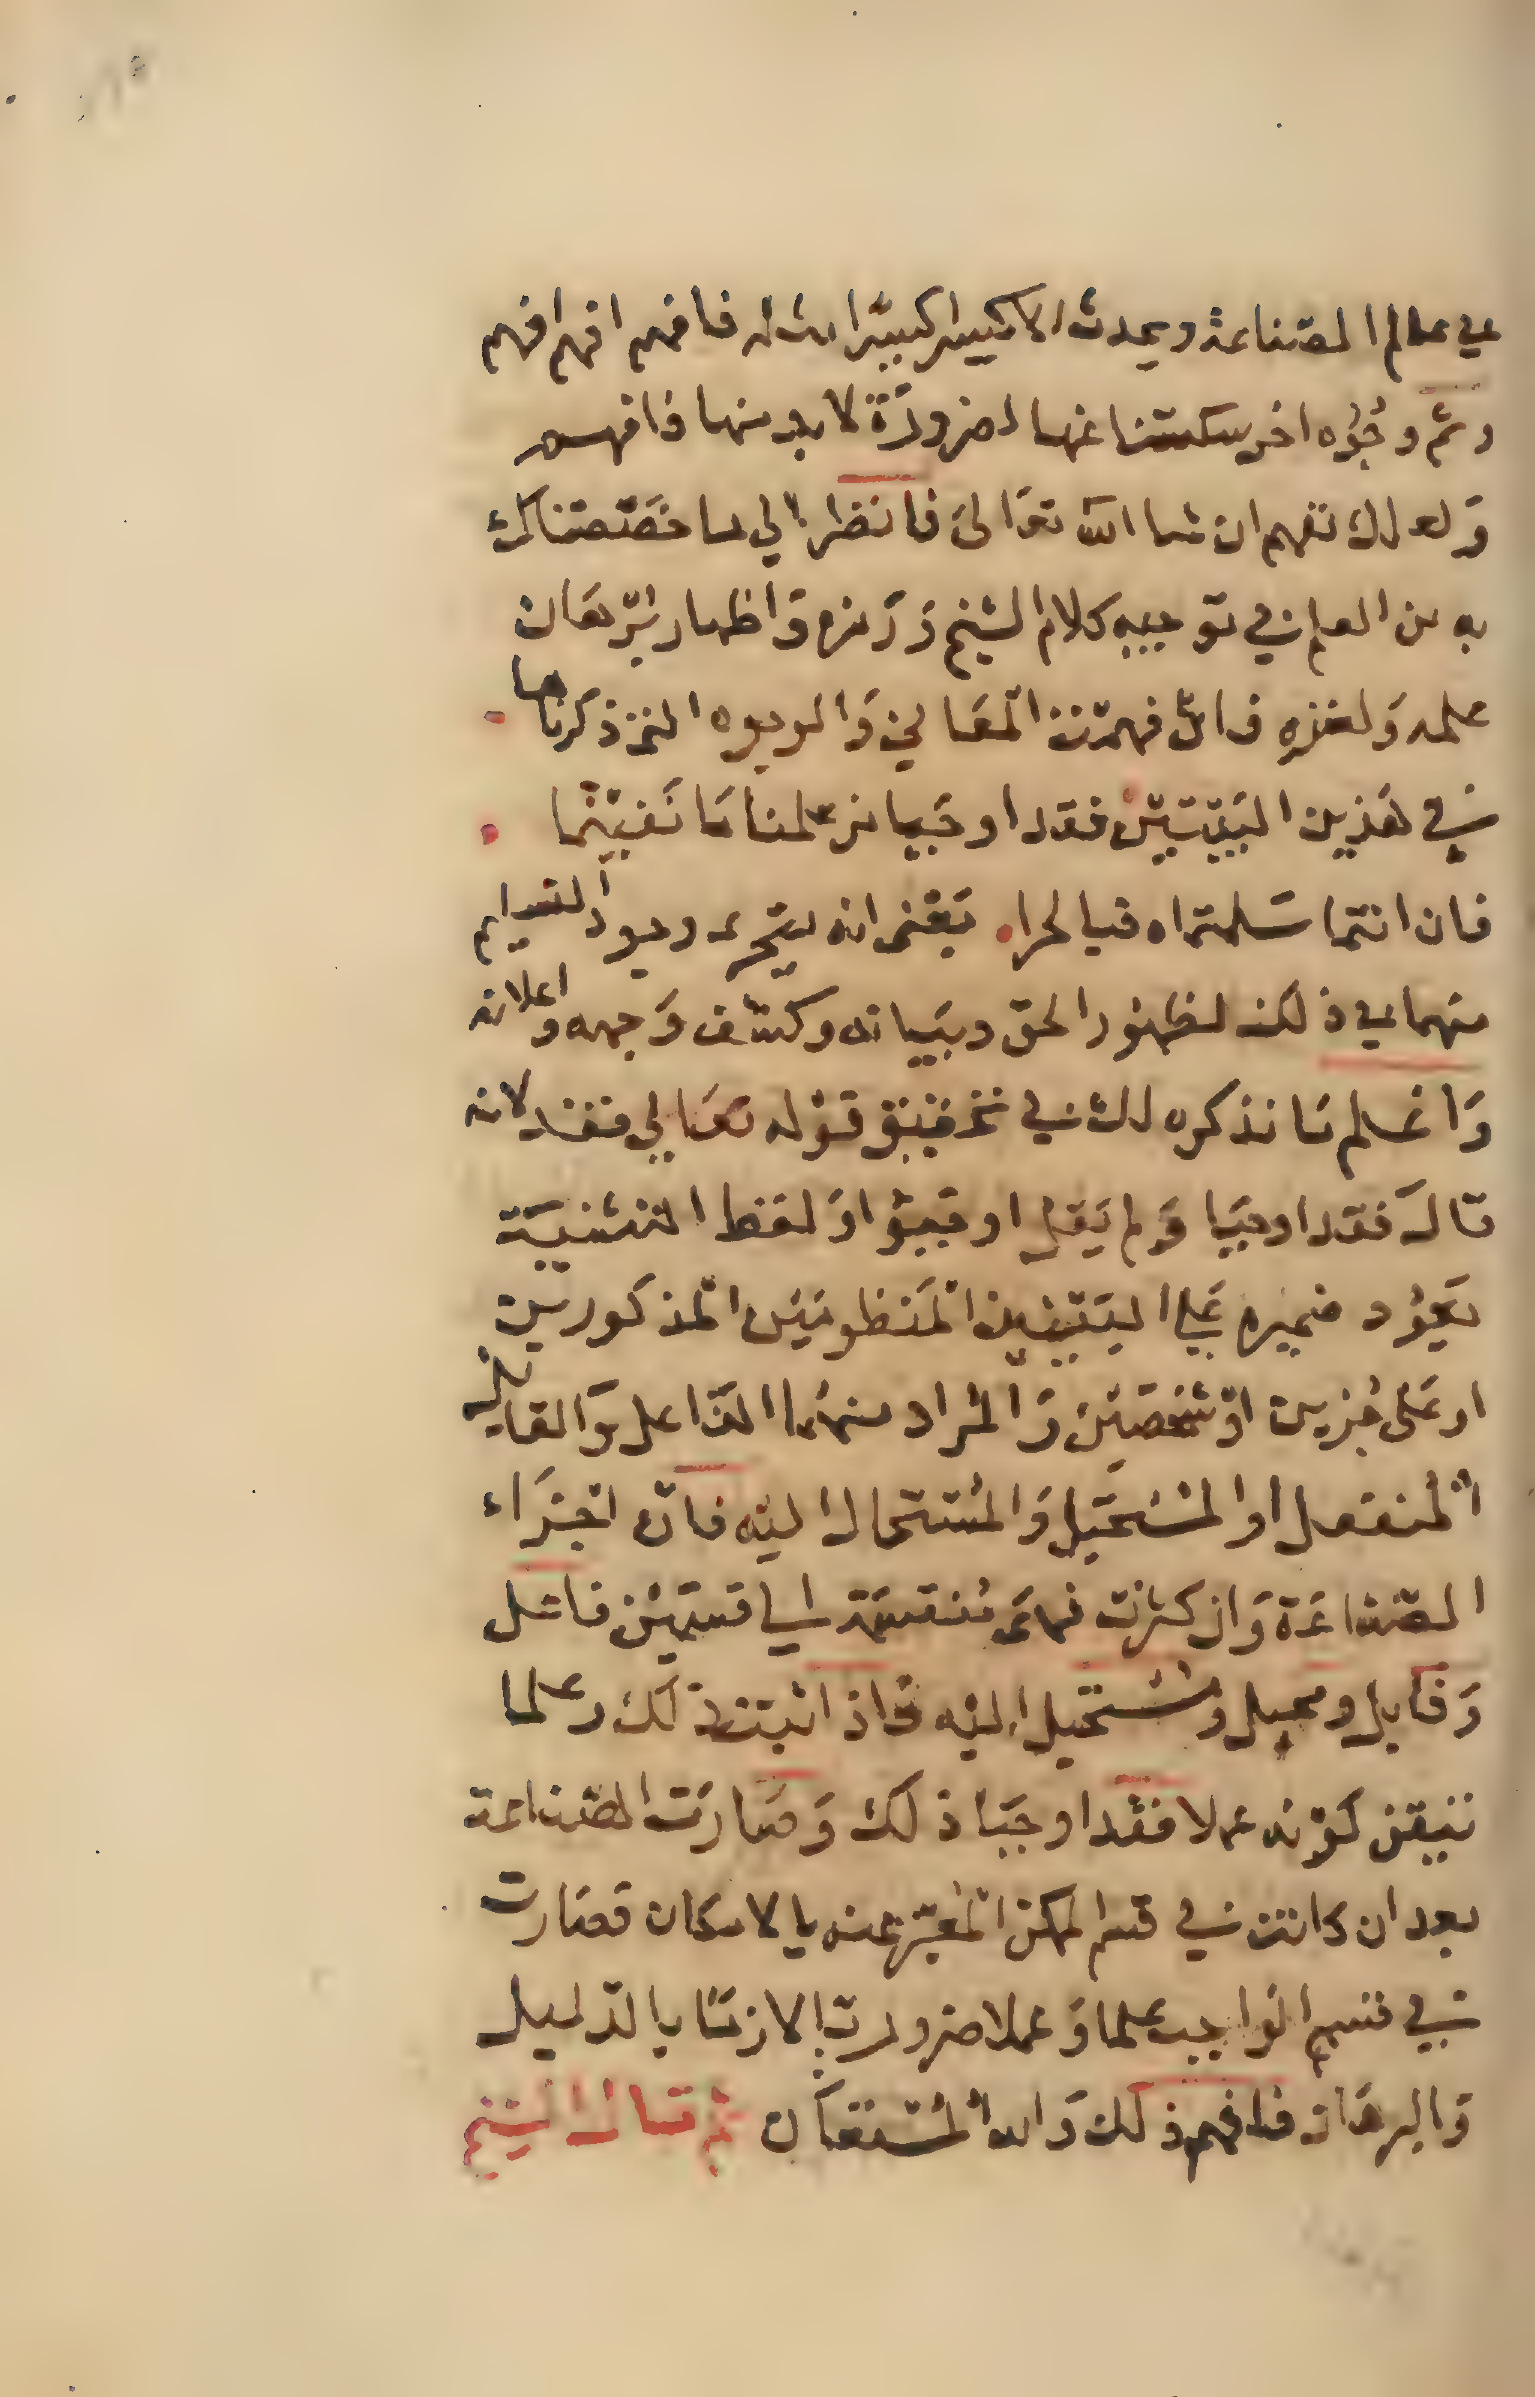 في عالم الصناعة ويحدث الاكسير كبيرا فافهم افهم افهم
وثم وجوه اخر سكتنا عنها لضرورة لابد منها فافهم
ولعلك تفهم ان شا الله تعالى فانظر الي ما خصصناك
به من العلم في توجيه كلام الشيخ ورمزه واظهار برهان
علمه ولغزه فان فهمت المعاني والوجوه التي ذكرناها
في هذين البيتين فقد اوجبا من علمنا ما نفيتما
فان انتما سلمتماه فبالحرا يعني انه وجود التسليم
منهما في ذلك لظهور الحق وبيانه وكشف وجهه واعلانه
واعلم ما نذكره لك في تحقيق قوله تعالي فقد لانه
قال فقد اوجبا ولم يقل اوجبوا ولفظ التثنية
يعود ضميره علي البيتين المنظومين المذكورين
او على جزين او شخصين والمراد منهما الفاعل والقابل
المنفعل او المستحيل والمستحال اليه فان اجزاء
الصناعة وان كثرت فهي منقسمة الي قسمين فاعل
وقابل ومحيل ومستحيل اليه فاذا اثبت ذلك وعلما
تيقن كونه عملا فقد اوجبا ذلك وصارت الصناعة
بعد ان كانت في قسم الممكن المعبر عنه بالامكان فصارت
في قسم الواجب علما وعملا ضروريا لازما بالدليل
والبرهان فافهم ذلك والله المستعان ثم قال الشيخ